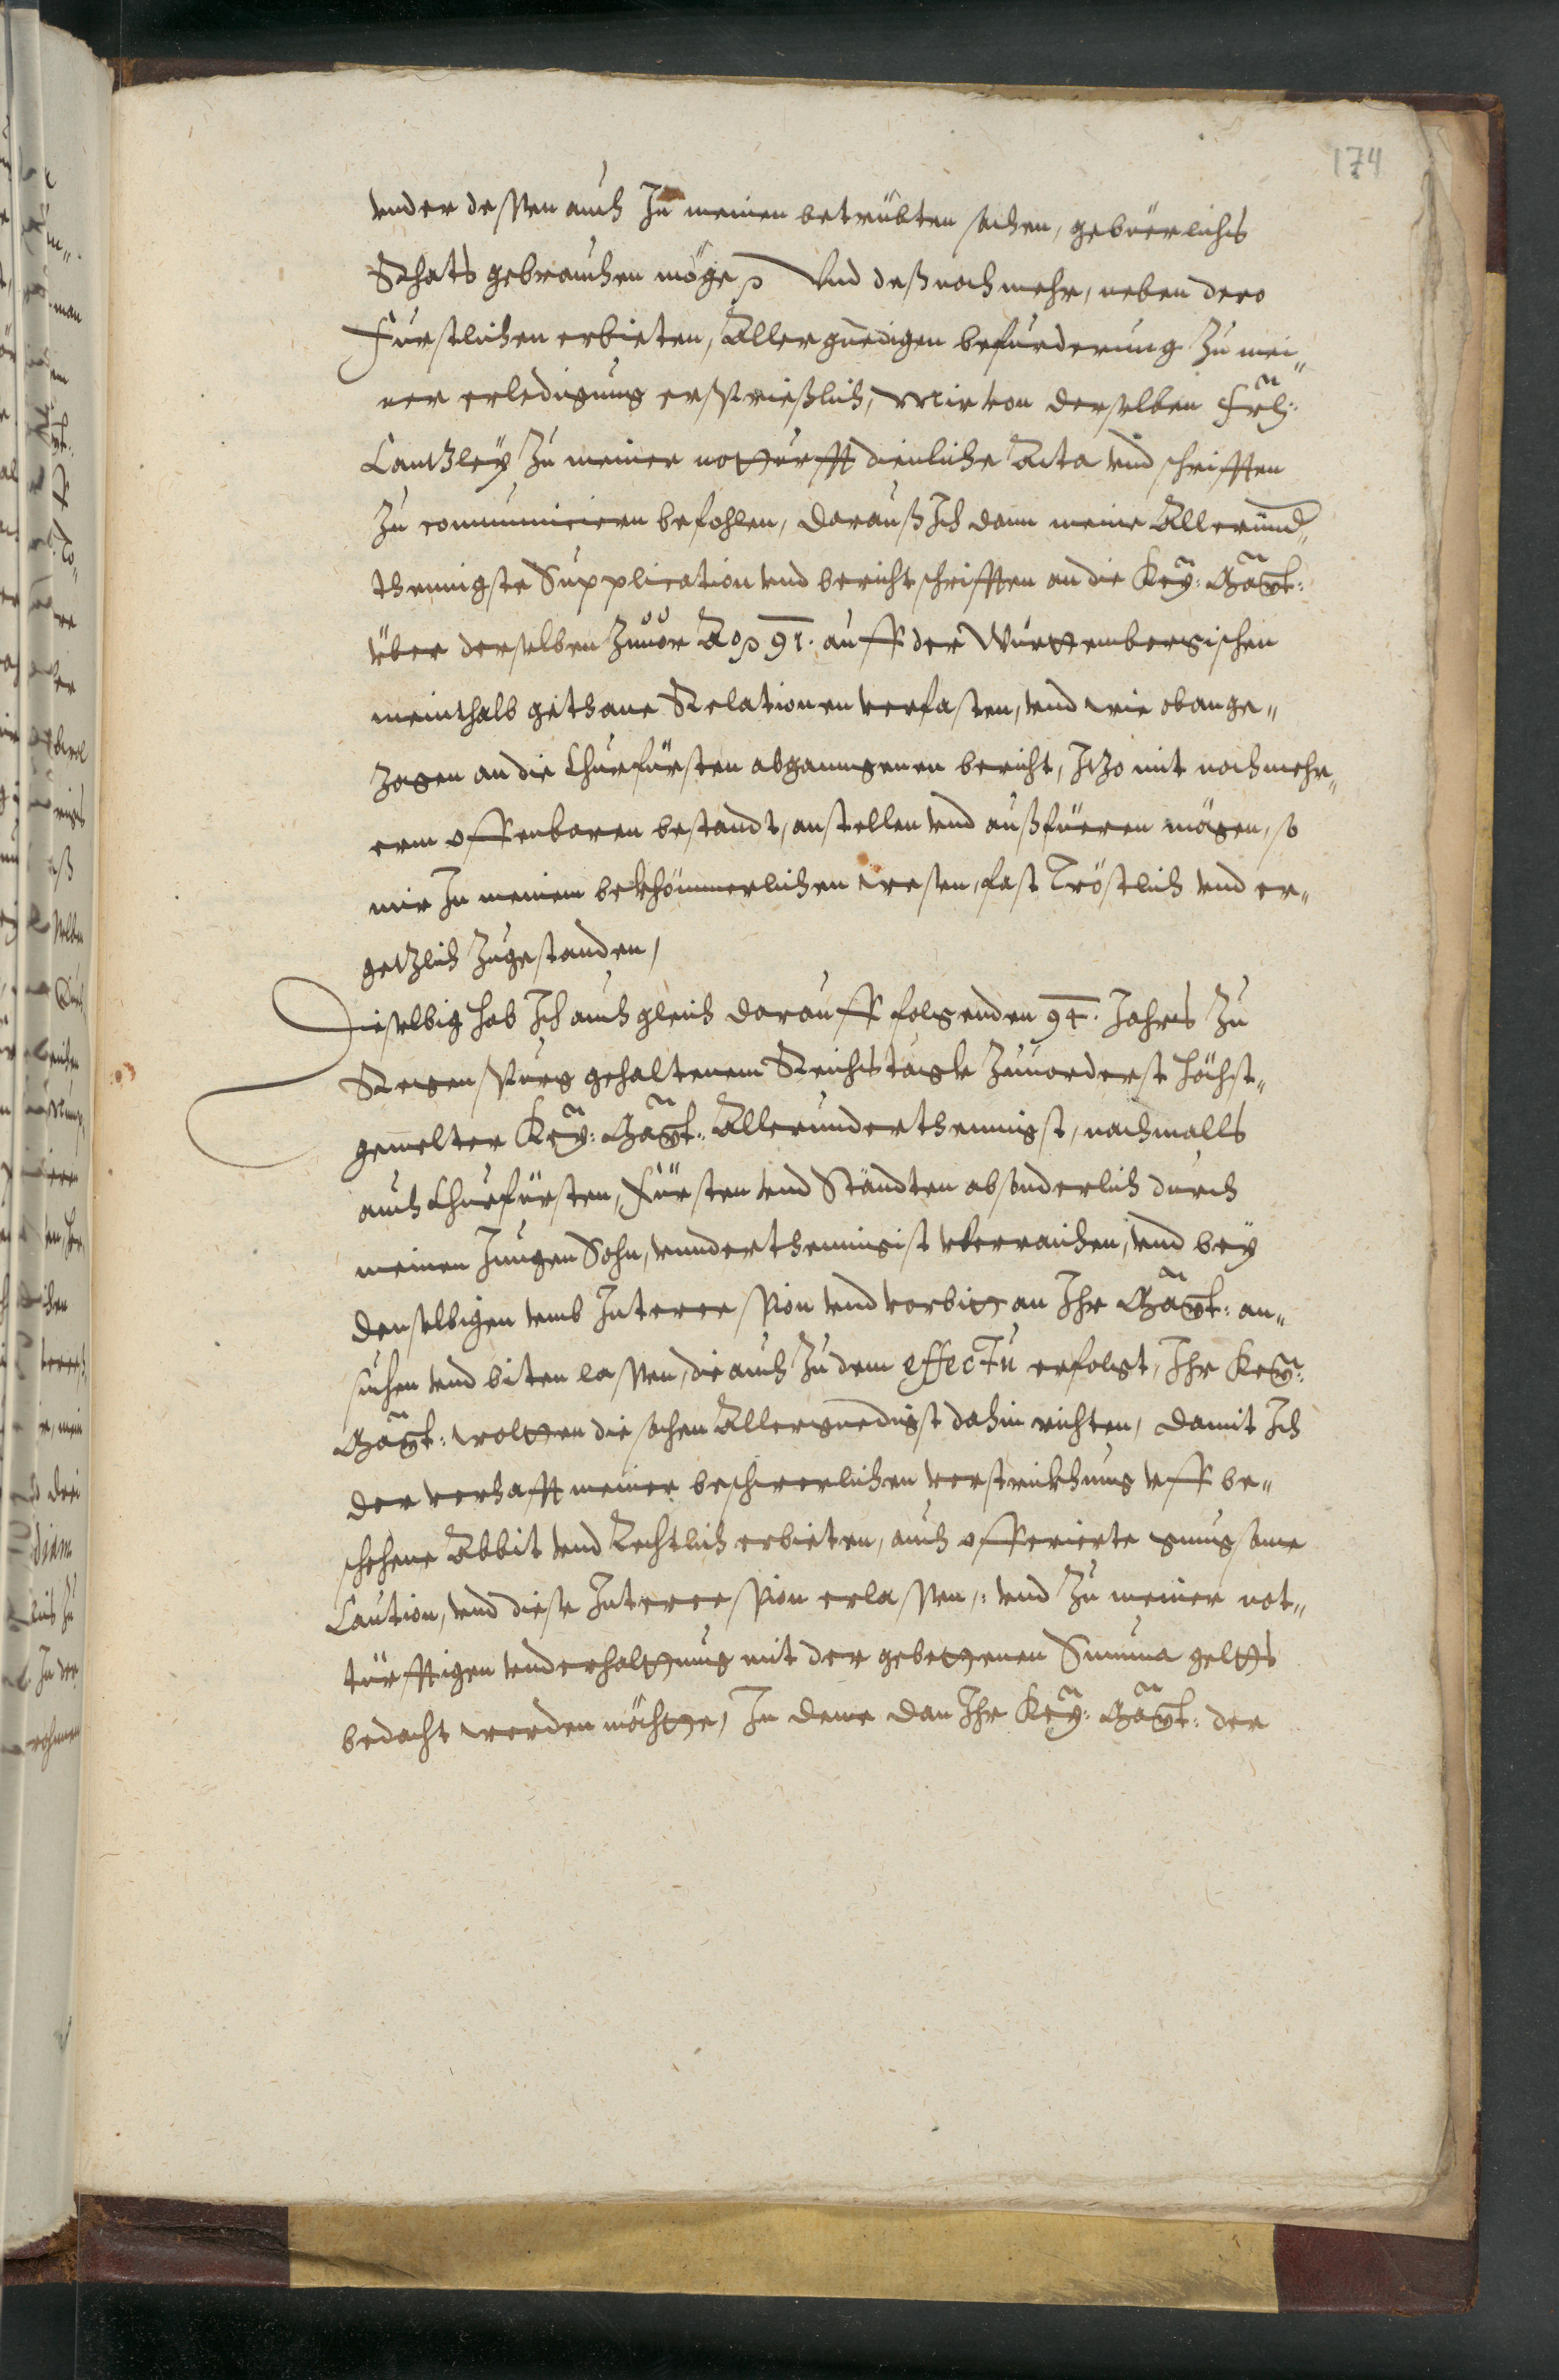 174
vnder dessen auch In meinen betrübten sachen, gebüerlichs
Rhats gebrauchen möge, Vnd deß noch mehr, neben dero
Fürstlichen erbieten, Aller gnedigen befürderung Zu mei„
ner erledigung ersprießlich, Mir von derselben Frl:
Cantzley Zu meiner notturfft dienliche Acta vnd schrifften
Zu communicieren befohlen, Darauß Ich dann meine Allerund„
thenigste Supplication vnd bericht schrifften an die Key: Mayt:
über derselben Zuuor Ao 91. auff der Württembergischen
meinthalb gethane Relationen verfasten, vnd wie obange„
zogen an die Churfürsten abgangenen bericht, Itzo mit noch mehr„
erm offenbaren bestandt, anstellen vnd außfüeren mögen, so
mir In meinem bekhömmerlichen wesen, fast Tröstlich vnd er„
getzlich Zugestanden,
Dieselbig hab Ich auch gleich darauff folgenden 94. Jahrs Zu
Regenspurg gehaltenem Reichstagk Zuuorderst höchst„
gemelter Key: Mayt: Allerunderthenigst, nachmalls
auch Churfürsten, Fürsten vnd Ständten absonderlich durch
meinen Jungen Sohn, vnnderthenigist vberraichen, vnd bey
denselbigen vmb Intercession vnd vorbitt an Ihr Mayt: an„
suchen vnd biten lassen, die auch Zu dem effectu erfolgt, Ihr Key:
Mayt: woltten die sachen Allergnedigst dahin richten, damit Ich
der verhafft meiner beschwerlichen verstrickhung vff be„
schehene Abbit vnd Rechtlich erbieten, auch offerierte gnugsame
Caution, vnd diese Intercession erlassen„ vnd Zu meiner not„
türfftigen vnderhalttung mit der gebettenen Summa geltts
bedacht werden möchtte, In deme dan Ihr Key: Mayt: der